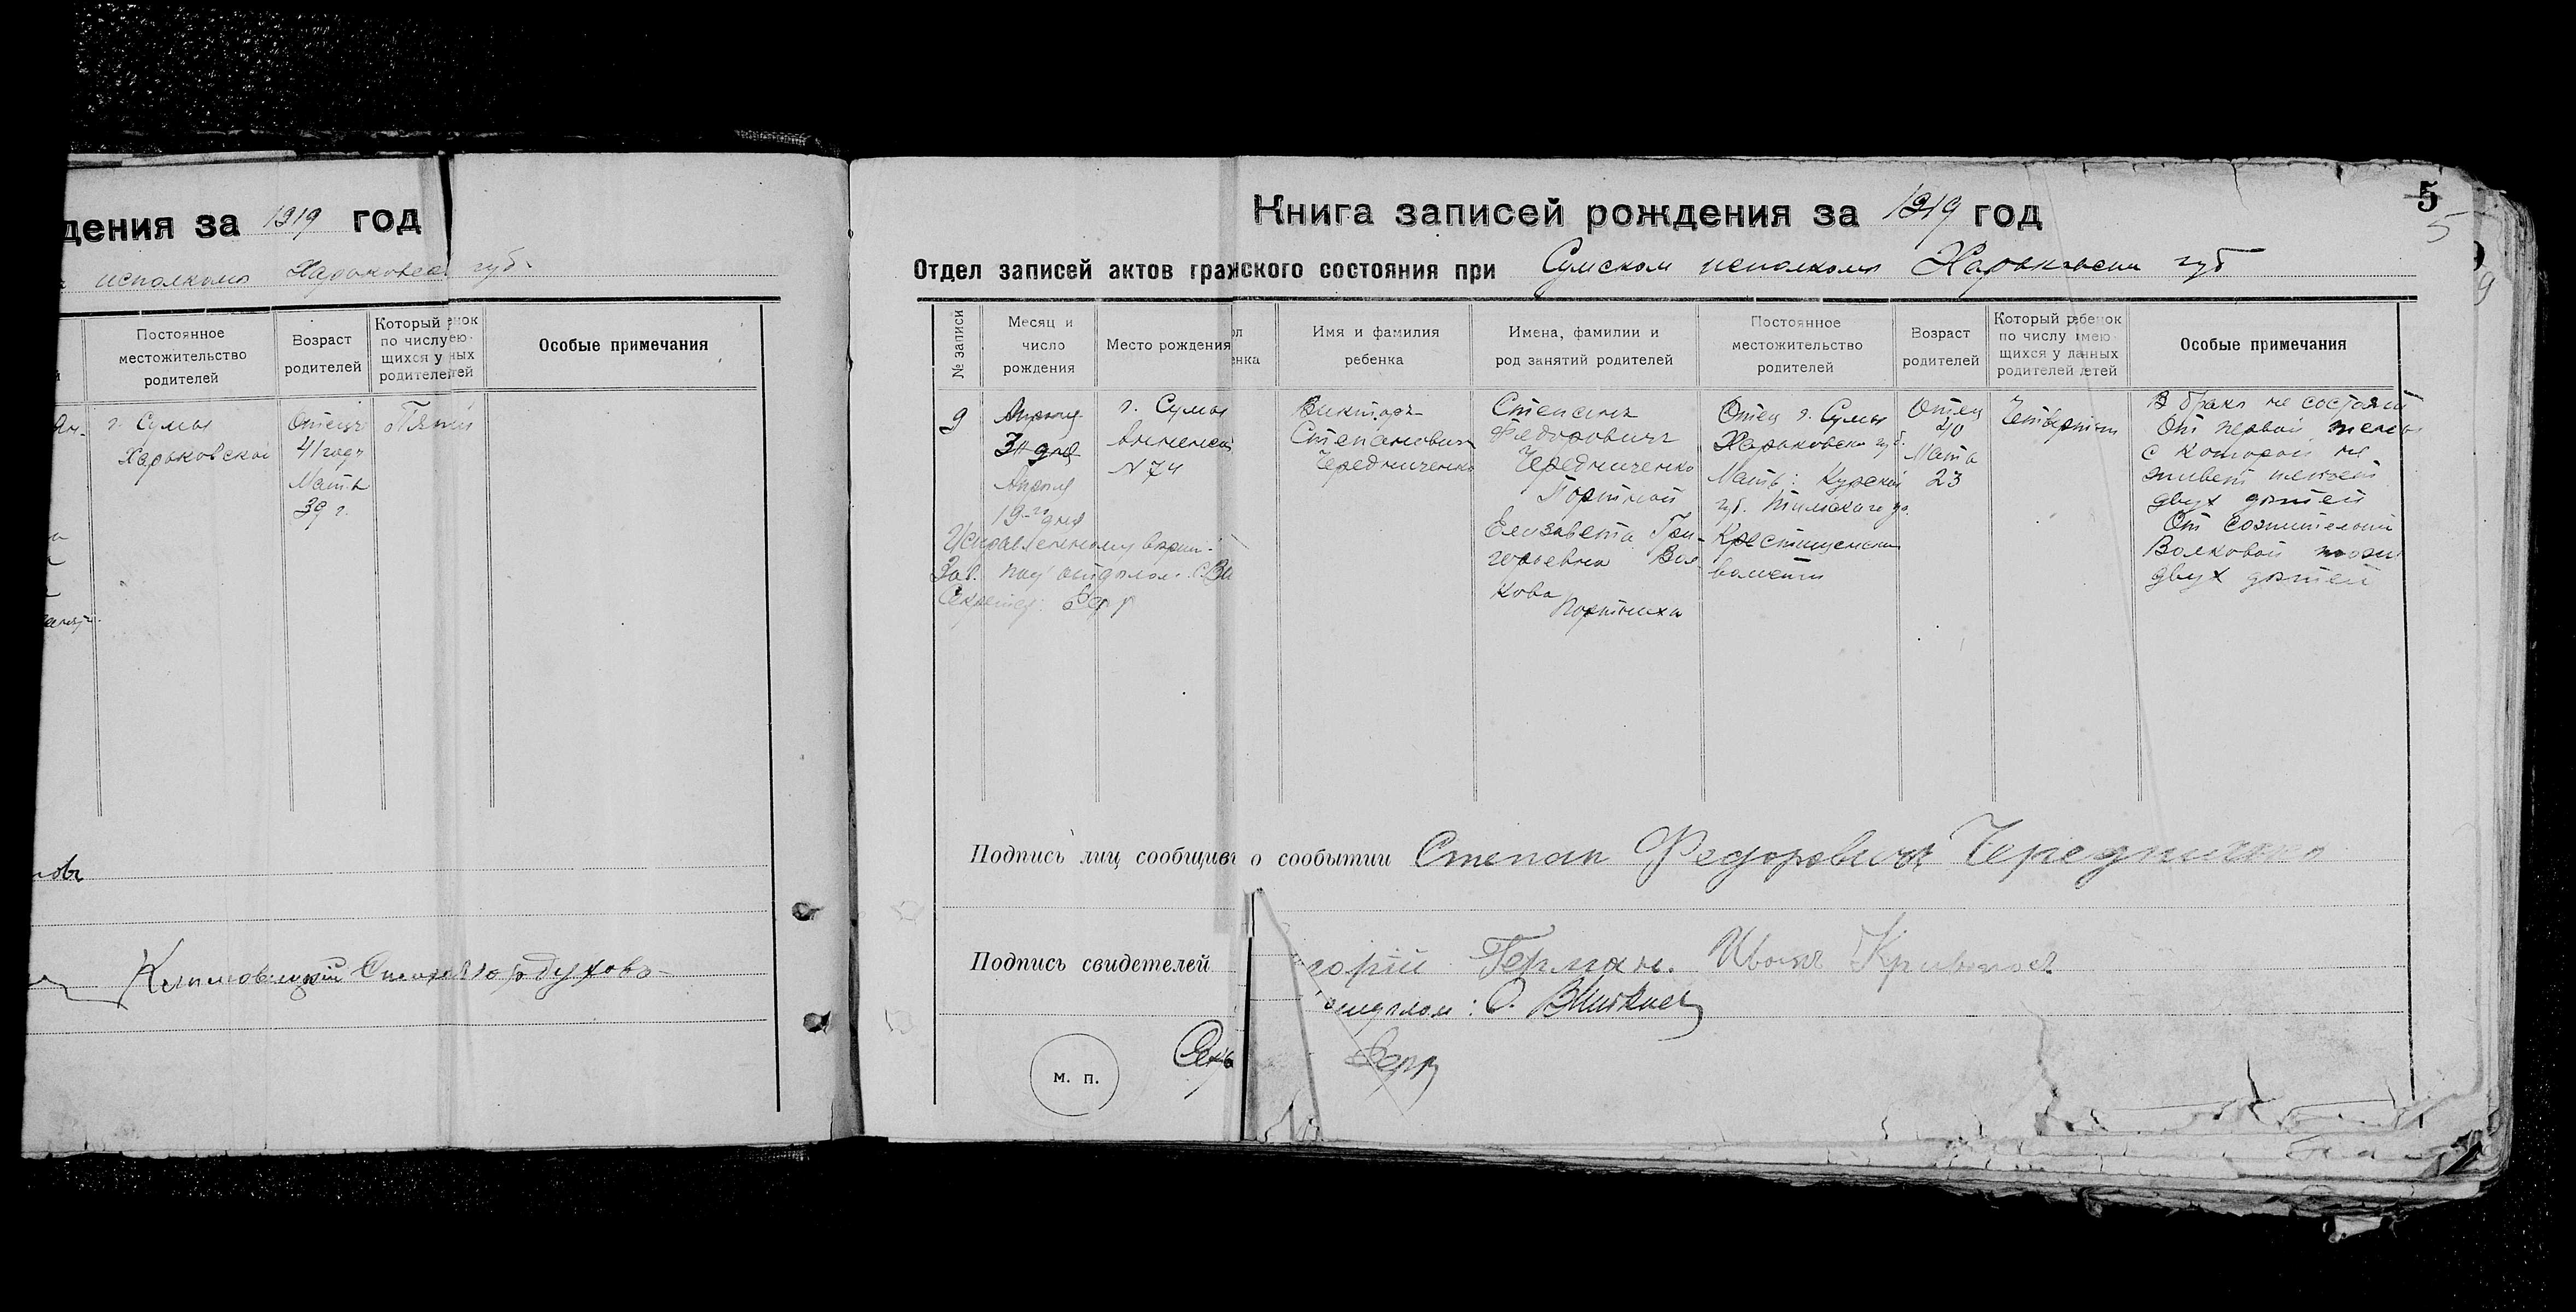 дения за 1919 год
исполкома Харьковской губ.
Постоянное местожительство родителей
Возраст родителей
Который енок по числу ею- щихся у ных родителей тей
Особые примечания
г. Сумы
Харьковской
Отец
41 году
Мать
39 г.
Пятый
новъ
5
5
Книга записей рождения за 1919 год
Отдел записей актов гражского состояния при Сумском исполкоме Харьковской губ
№ записи
Месяц и число рождения
Место рождения
ол енка
Имя и фамилия ребенка
Имена, фамилии и род занятий родителей
Постоянное местожительство родителей
Возраст родителей
Который ребенок по числу имею- щихся у данных родителей детей
Особые примечания
9
Апреля
3го дня
Апреля
19-го дня
Исправленному верить
Зав. подотделом
Секретарь:
г. Сумы
N 74
Викторъ
Степановичъ
Чередниченко
Степанъ
Федоровичъ
Чередниченко
Портной
Елизавета Гри-
горьевна Вол
кова
Портниха
Отец г. Сумы
Харьковской губ.
Мать: Курской
губ. Тимскаго у.
Крестищенской
волости
Отец
40
Мать
23
Четвертый
В браке не состоят
От первой жены
с которой не
живет имеет
двух детей
От сожительницы
Волковой
двух детей
Подпись лиц сообщив о сообытии Степан Федоровичъ Чередниченко
Подпись свидетелей горій Герман. Иванъ
отделом: О.
м. п.